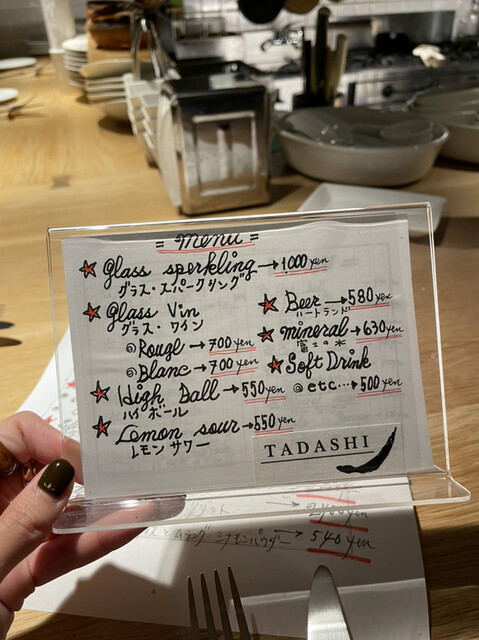 = menu =
Glass sperkling → 1,000 yen
グラス・スパークリング
Glass Vin
グラス・ワイン
@ Rough → 700 yen
@ Blanc → 700 yen
High Ball → 550 yen
ハイボール
Lemon sour → 550 yen
レモンサワー
Beer → 580 yen
ハートランド
mineral → 630 yen
富士の水
Soft Drink
@ etc… → 500 yen
TADASHI
2,400 yen
シナモンパウダー → 540 yen